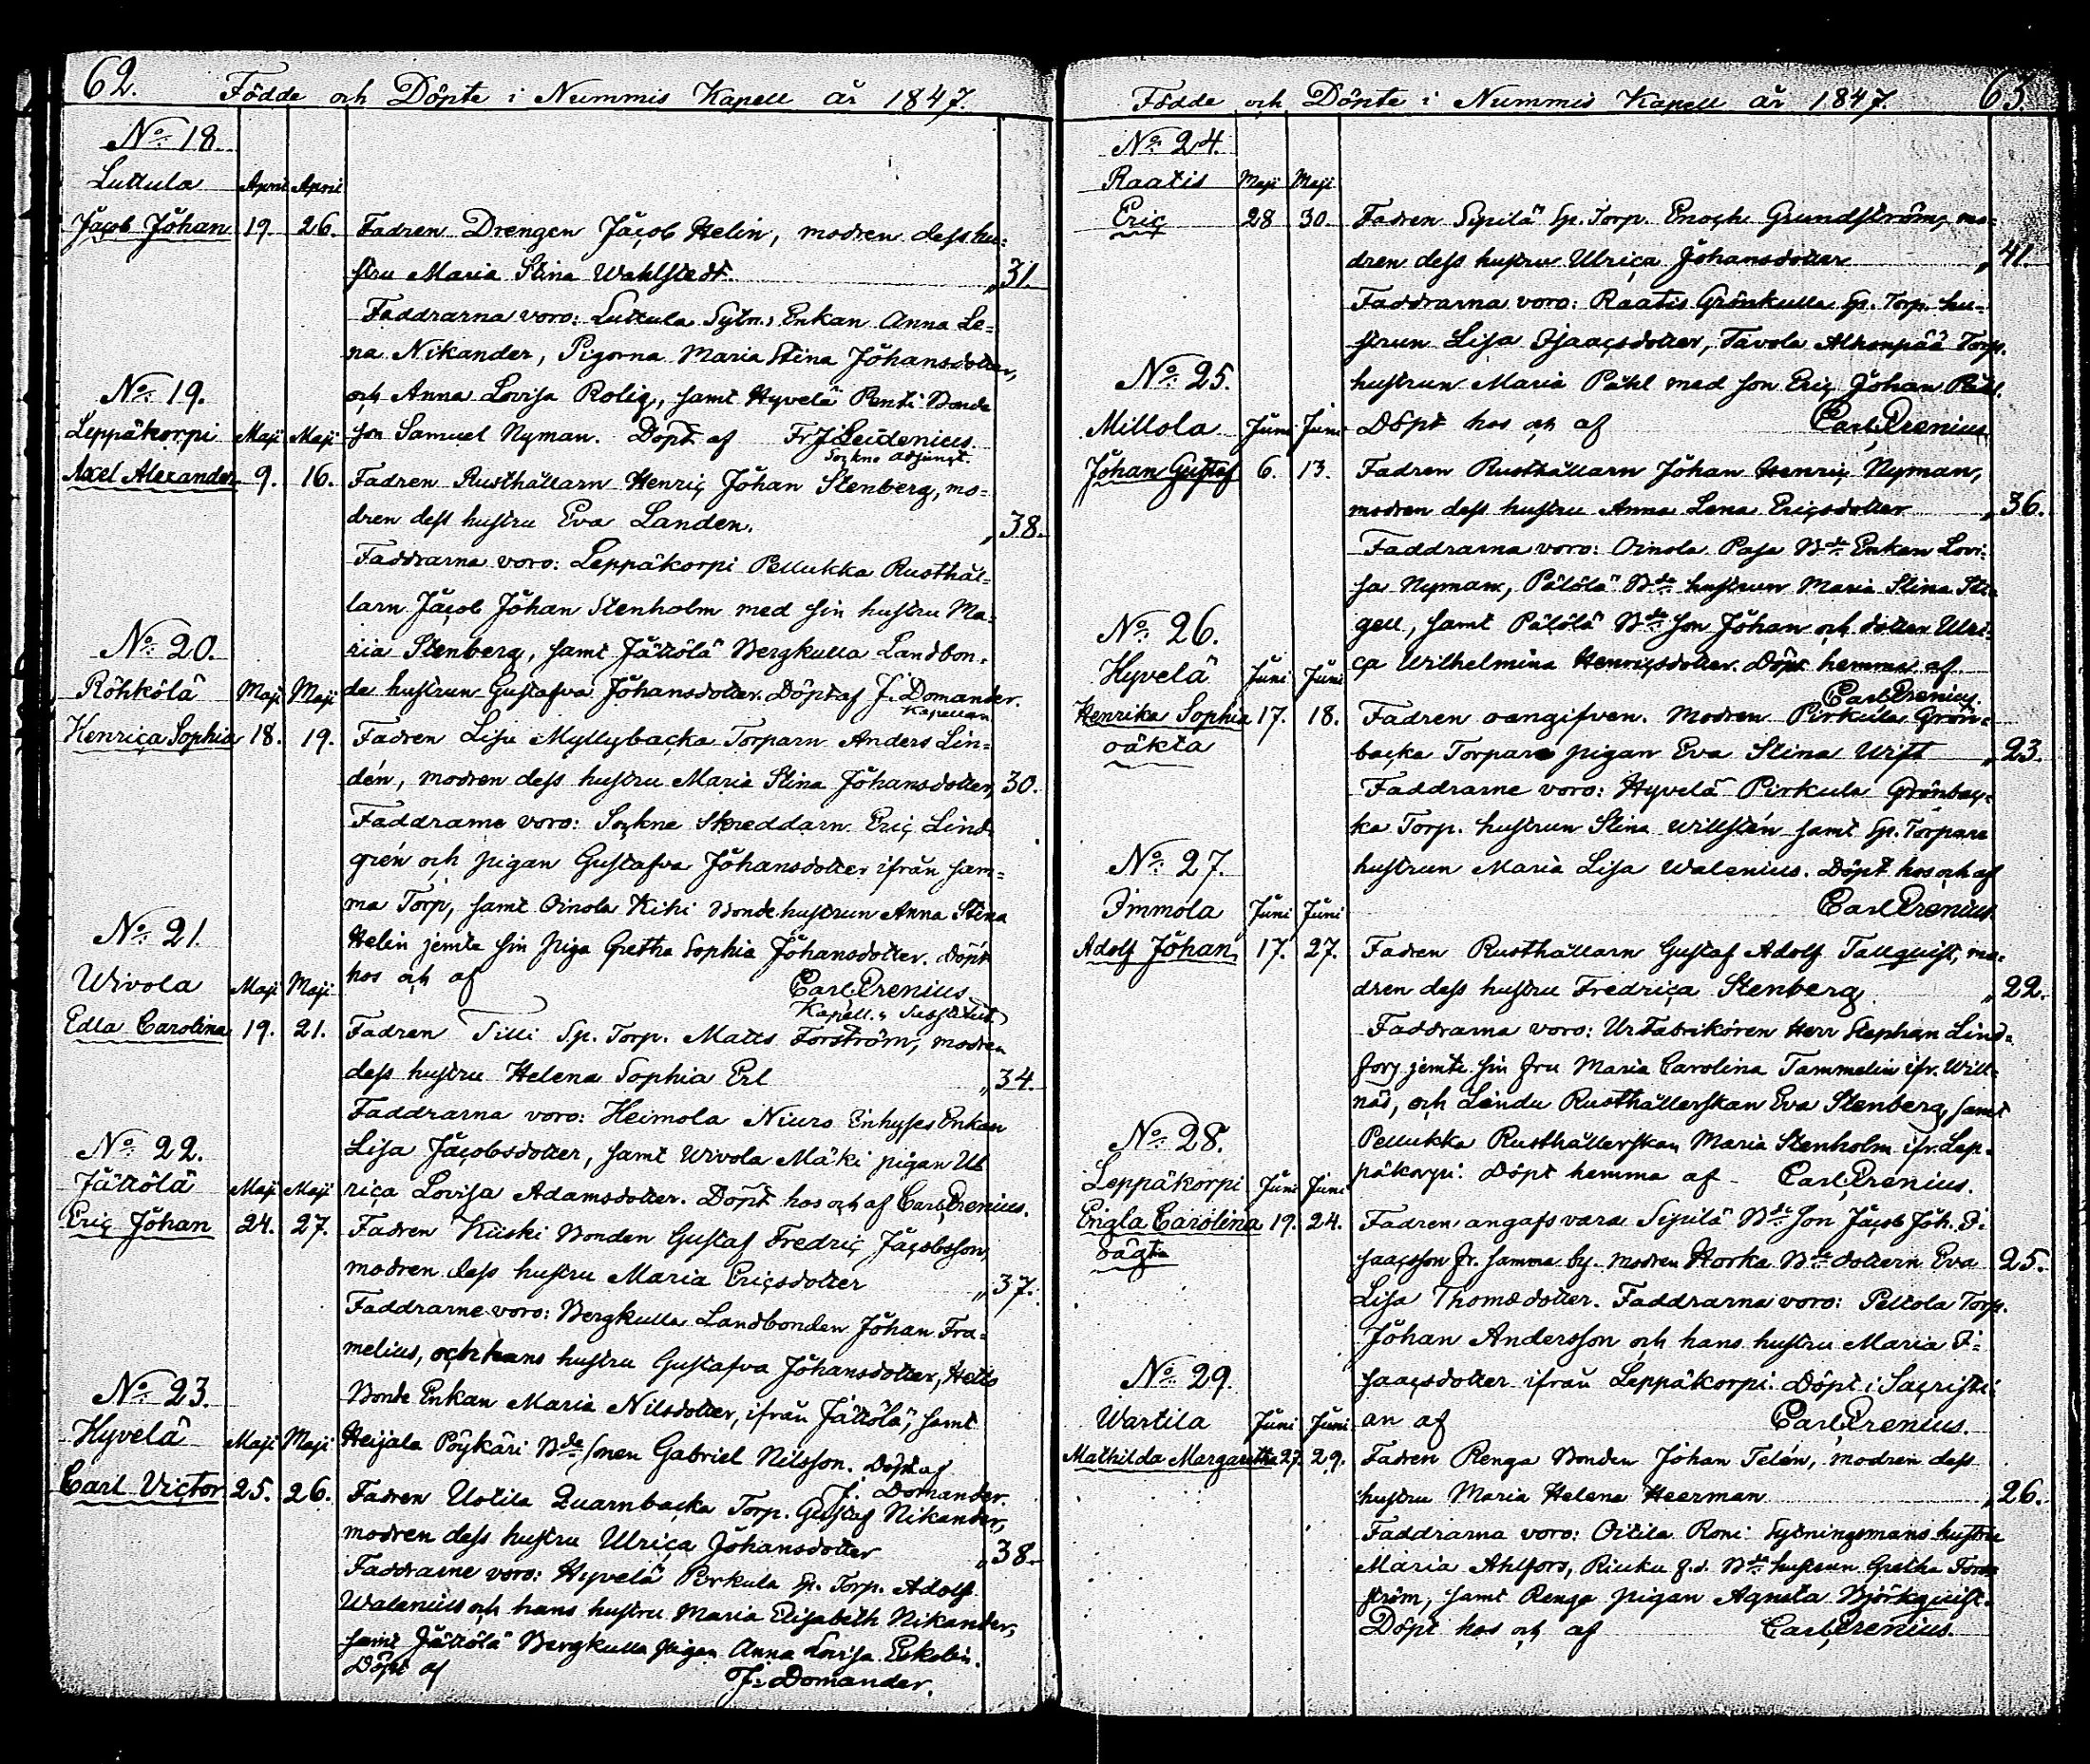 62.
Födde och Döpte i Nummis Kapell år 1847.
No. 18
Luttula April April
Jacob Johan 19. 26. Fadren Drengen Jacob Helin, modren dess hu-
stru Maria Stina Wahlstedt. „31.
Faddrarna voro: Luttula Sytn: Enkan Anna Le-
na Nikander, Pigorna Maria Stina Johansdotter,
No. 19.
och Anna Lovisa Rolig, samt Hyvelä Penti Bonde
Leppäkorpi Maji Maji son Samuel Nyman. Döpt af Fr J Leidenius
Sockne Adjunct.
Axel Alexander 9. 16. Fadren Rusthållarn Henric Johan Stenberg, mo-
dren dess hustru Eva Landen. „38.
Faddrarna voro: Leppäkorpi Pellukka Rusthål-
larn Jacob Johan Stenholm med sin hustru Ma-
No. 20.
ria Stenberg, samt Jättölä Bergkulla Landbon-
Röhkölä Maji Maji de hustrun Gustafva Johansdotter. Döpt af J. Domander.
Kapellan
Henrica Sophia 18. 19. Fadren Lisu Myllybacka Torparn Anders Lin-
dén, modren dess hustru Maria Stina Johansdotter, 30.
Faddrarne voro: Sockne Skreddarn Eric Lind-
grén och pigan Gustafva Johansdotter ifrån sam-
ma Torp, samt Oinola Kihi Bonde hustrun Anna Stina
No. 21.
Helin jemte sin piga Gretha Sophia Johansdotter. Döpt
Wivola Maji Maji hos och af Carl Prenius
Kapell. Substitut
Edla Carolina 19. 21. Fadren Tilli Sp. Torp. Matts Forström, modren
dess hustru Helena Sophia Erl „34.
Faddrarna voro: Heimola Niurs Enhyses Enkan
No. 22.
Lisa Jacobsdotter, samt Wivola Mäki pigan Ul
Jättölä Maji Maji rica Lovisa Adamsdotter. Döpt hos och af Carl Prenius.
Eric Johan 24. 27. Fadren Kuski Bonden Gustaf Fredric Jacobsson,
modren dess hustru Maria Ericsdotter „37.
Faddrarne voro: Bergkulla Landbonden Johan Fra-
melius, och hans hustru Gustafva Johansdotter,
No. 23.
Bonde Enkan Maria Nilsdotter, ifrån Jättölä, samt
Hyvelä Maji Maji Heijala Pöykäri Bde sonen Gabriel Nilsson. Döpt af
J. Domander.
Carl Victor 25. 26. Fadren Uotila Quarnbacka Torp. Gustaf Nikander,
modren dess hustru Ulrica Johansdotter „38.
Faddrarne voro: Hyvelä Pirkula Sp. Torp. Adolf
Walenius och hans hustru Maria Elisabeth Nikander,
samt Jättölä Bergkulla pigan Anna Lovisa Eskelin.
Döpt af J. Domander.
63.
Födde och Döpte i Nummis Kapell år 1847.
No. 24.
Raatis Maji Maji
Eric 28 30. Fadren Sipilä Sp. Torp. Enoch Grundström, mo-
dren dess hustru Ulrica Johansdotter „41.
Faddrarna voro: Raatis Grönkulla Sp. Torp. hu-
strun Lisa Isaacsdotter, Tavola Torp.
No. 25.
hustrun Maria Pähl med son Eric Johan Pähl.
Millola Juni Juni Döpt hos och af Carl Prenius
Johan Gustaf 6. 13. Fadren Rusthållarn Johan Henric Nyman,
modren dess hustru Anna Lena Ericsdotter „36.
Faddrarna voro: Oinola Pasa Bde Enkan Lovi-
sa Nyman, Pälölä Bde hustrun Maria Stina Sti-
No. 26.
gell, samt Pälölä Bde son Johan och dotter Ulri-
Hyvelä Juni Juni ca Wilhelmina Henricsdotter. Döpt hemma af
Carl Prenius.
Henrika Sophia 17. 18. Fadren oangifven. Modren Pirkula Grön-
oäkta backa Torpare pigan Eva Stina Wift „23.
Faddrarne voro: Hyvelä Pirkula Grönbac-
ka Torp. hustrun Stina Willstén samt Sp. Torpare
No. 27.
hustrun Maria Lisa Walenius. Döpt hos och af
Immola Juni Juni Carl Prenius.
Adolf Johan 17. 27. Fadren Rusthållarn Gustaf Adolf Tallquist, mo-
dren dess hustru Fredrica Stenberg „22.
Faddrarna voro: Ur Fabrikören Herr Stephan Lind-
fors jemte sin fru Maria Carolina Tammelin ifr. Will-
näs, och Lindu Rusthållerskan Eva Stenberg, samt
No. 28.
Pellukka Rusthållerskan Maria Stenholm ifr. Lep-
Leppäkorpi Juni Juni päkorpi. Döpt hemma af Carl Prenius.
Engla Carolina 19. 24. Fadren angafs vara Sipilä Bde son Jacob Joh. I-
oägta saacsson fr. samma by. modren Horka Bde dottern Eva 25.
Lisa Thomædotter. Faddrarna voro: Peltola Torp.
Johan Andersson och hans hustru Maria I-
No. 29.
saacsdotter ifrån Leppäkorpi. Döpt i Sacristi-
Wartila Juni Juni an af Carl Prenius.
Mathilda Margaretha 27. 29. Fadren Renga Bonden Johan Telén, modren dess
hustru Maria Helena Heerman „26.
Faddrarna voro: Oitila Roni Sytningsmans hustru
Maria Ahlfors, Riuku f.d. Bde hustrun Gretha Forss
ström, samt Renga pigan Agneta Björkquist.
Döpt hos och af Carl Prenius.